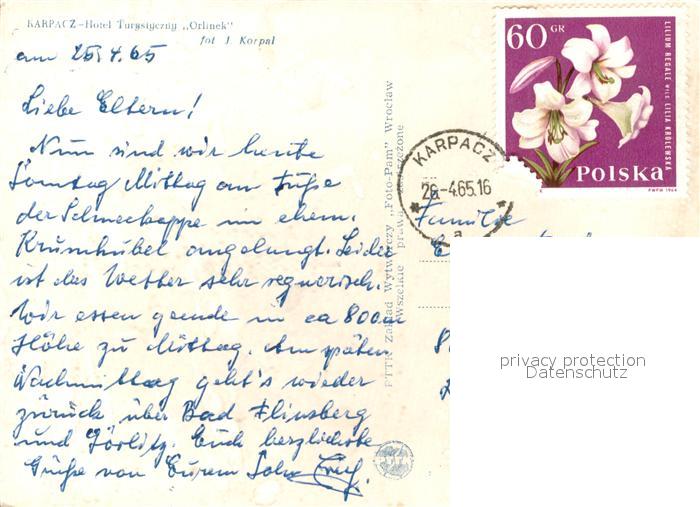 KARPACZ–Hotel Turystyczny „Orlinek"
fot J. Korpal
am 25.4.65
Liebe Eltern!
Nun sind wir heute
Sonntag Mittag am Fuße
der Schneekoppe im ehem.
Krummhübel angelangt. Leider
ist das Wetter sehr regnerisch.
Wir essen gerade in ca 800m
Höhe zu Mittag. Am späten
Nachmittag geht's wieder
zurück über Bad Flinsberg
und Görlitz. Euch herzlichste
Grüße von Eurem Sohn
PTTK Zakład Wytwórczy „Foto-Pam" Wrocław
Wszelkie prawa zastrzeżone
60 GR
LILIUM REGALE WILS. LILIA KRÓLEWSKA
Polska
PWPW 1964
KARPACZ
26.-4.65.16
a
Familie
privacy protection
Datenschutz